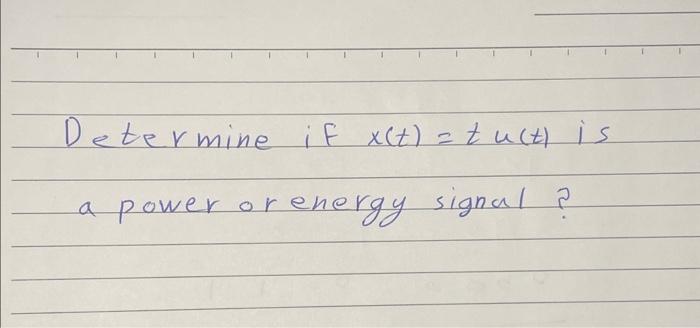 Determine if x(t) = t u(t) is
a power or energy signal ?